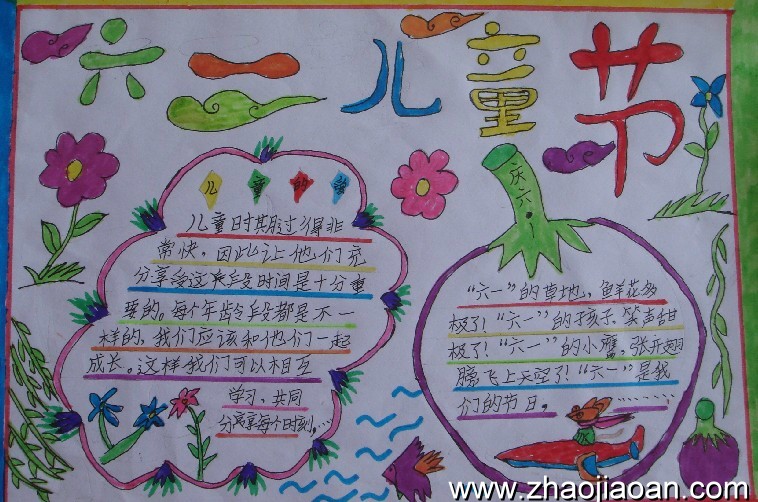 六一儿童节
儿童的
儿童时期过得非
常快，因此让他们充
分享受这美段时间是十分重
要的。每个年龄段都是不一
样的，我们应该和他们一起
成长。这样我们可以相互
学习、共同
分享每个时刻.…
庆六一
“六一”的草地，鲜花多
极了！“六一”的孩子、笑声甜
极了！“六一”的小鹰，张开翅
膀飞上天空了！“六一”是我
们的节日。…………
www.zhaojiaoan.com